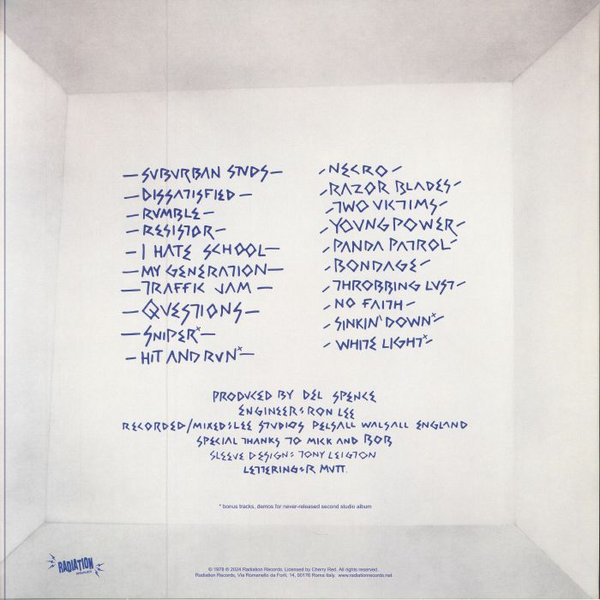 — SUBURBAN STUDS —
— DISSATISFIED —
— RUMBLE —
— RESISTOR —
— I HATE SCHOOL —
— MY GENERATION —
— TRAFFIC JAM —
— QUESTIONS —
— SNIPER* —
— HIT AND RUN* —
- NECRO -
- RAZOR BLADES -
- TWO VICTIMS -
- YOUNG POWER -
- PANDA PATROL -
- BONDAGE -
- THROBBING LUST -
- NO FAITH -
- SINKIN' DOWN* -
- WHITE LIGHT* -
PRODUCED BY DEL SPENCE
ENGINEER: RON LEE
RECORDED/MIXED: LEE STUDIOS PELSALL WALSALL ENGLAND
SPECIAL THANKS TO MICK AND BOB
SLEEVE DESIGN: TONY LEIGTON
LETTERING: R MUTT.
* bonus tracks, demos for never-released second studio album
RADIATION
℗ 1978 © 2024 Radiation Records. Licensed by Cherry Red. All rights reserved.
Radiation Records, Via Romanello da Forlì, 14, 00176 Roma Italy. www.radiationrecords.net